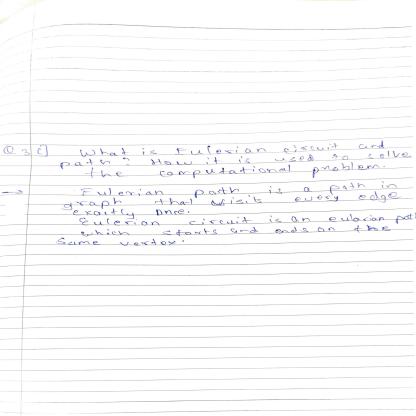 Q 3 c] What is Eulerian circuit and
path? How it is used to solve
the computational problem.
→ Eulerian path is a path in
graph that visits every edge
exactly once.
Eulerian circuit is an eularian path
which starts and ends on the
same vertex.